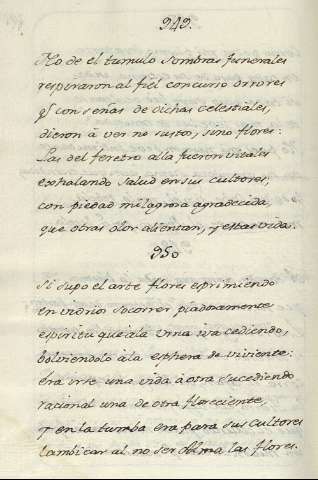 949.
No de el tumulo sombras funerales
respiraron al fiel concurso orrores
q̃ con señas de dichas celestiales,
dieron à ver no sustos, sino flores:
Las del feretro alla fueron vitales
exhalando salud en sus cultores,
con piedad milagrosa agradecida,
que otras olor alientan, y estas vida.
950
Si supo el arte flores esprimiendo
en vidrios socorrer piadosamente
espiritu que à la Vrna iva cediendo,
bolviendolo à la esphera de viviente:
Era vrse una vida à otra sucediendo
racional una de otra floreciente,
Y en la tumba era para sus cultores
lambicar al no ser el Alma las flores.